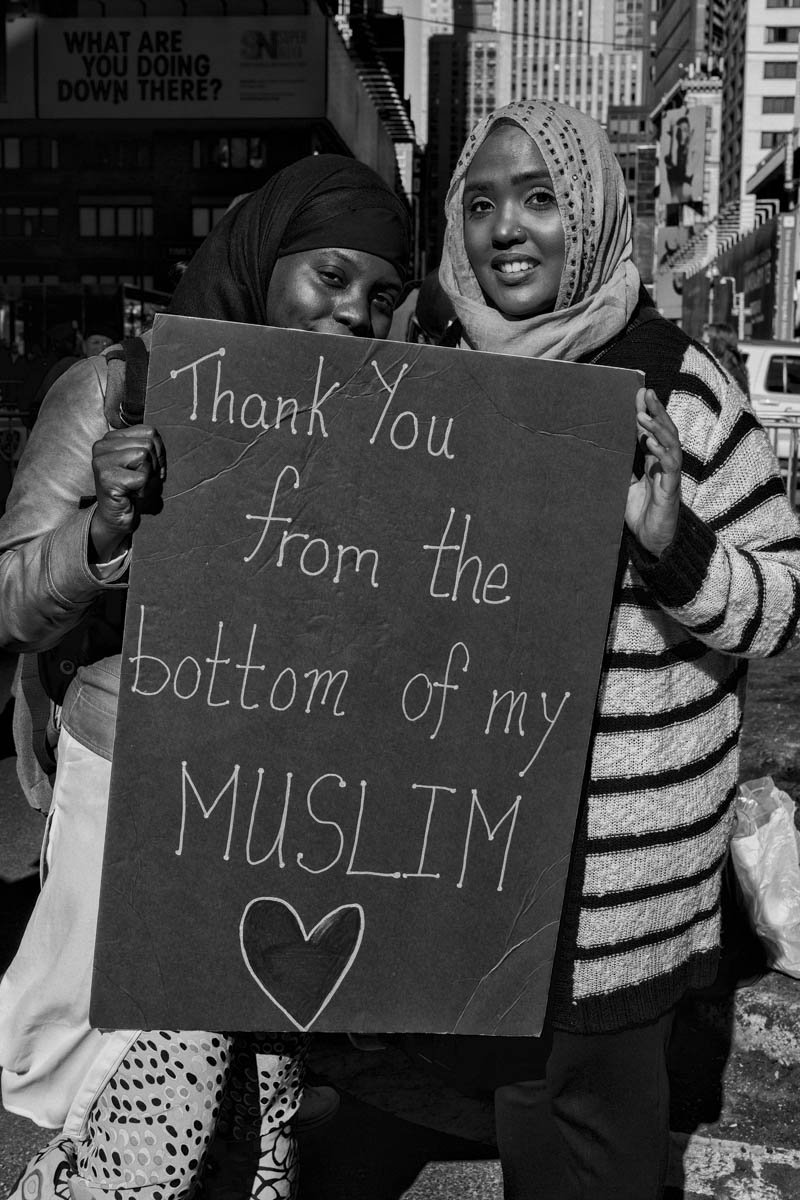 WHAT ARE
YOU DOING
DOWN THERE?
SN
Thank You
from the
bottom of my
MUSLIM